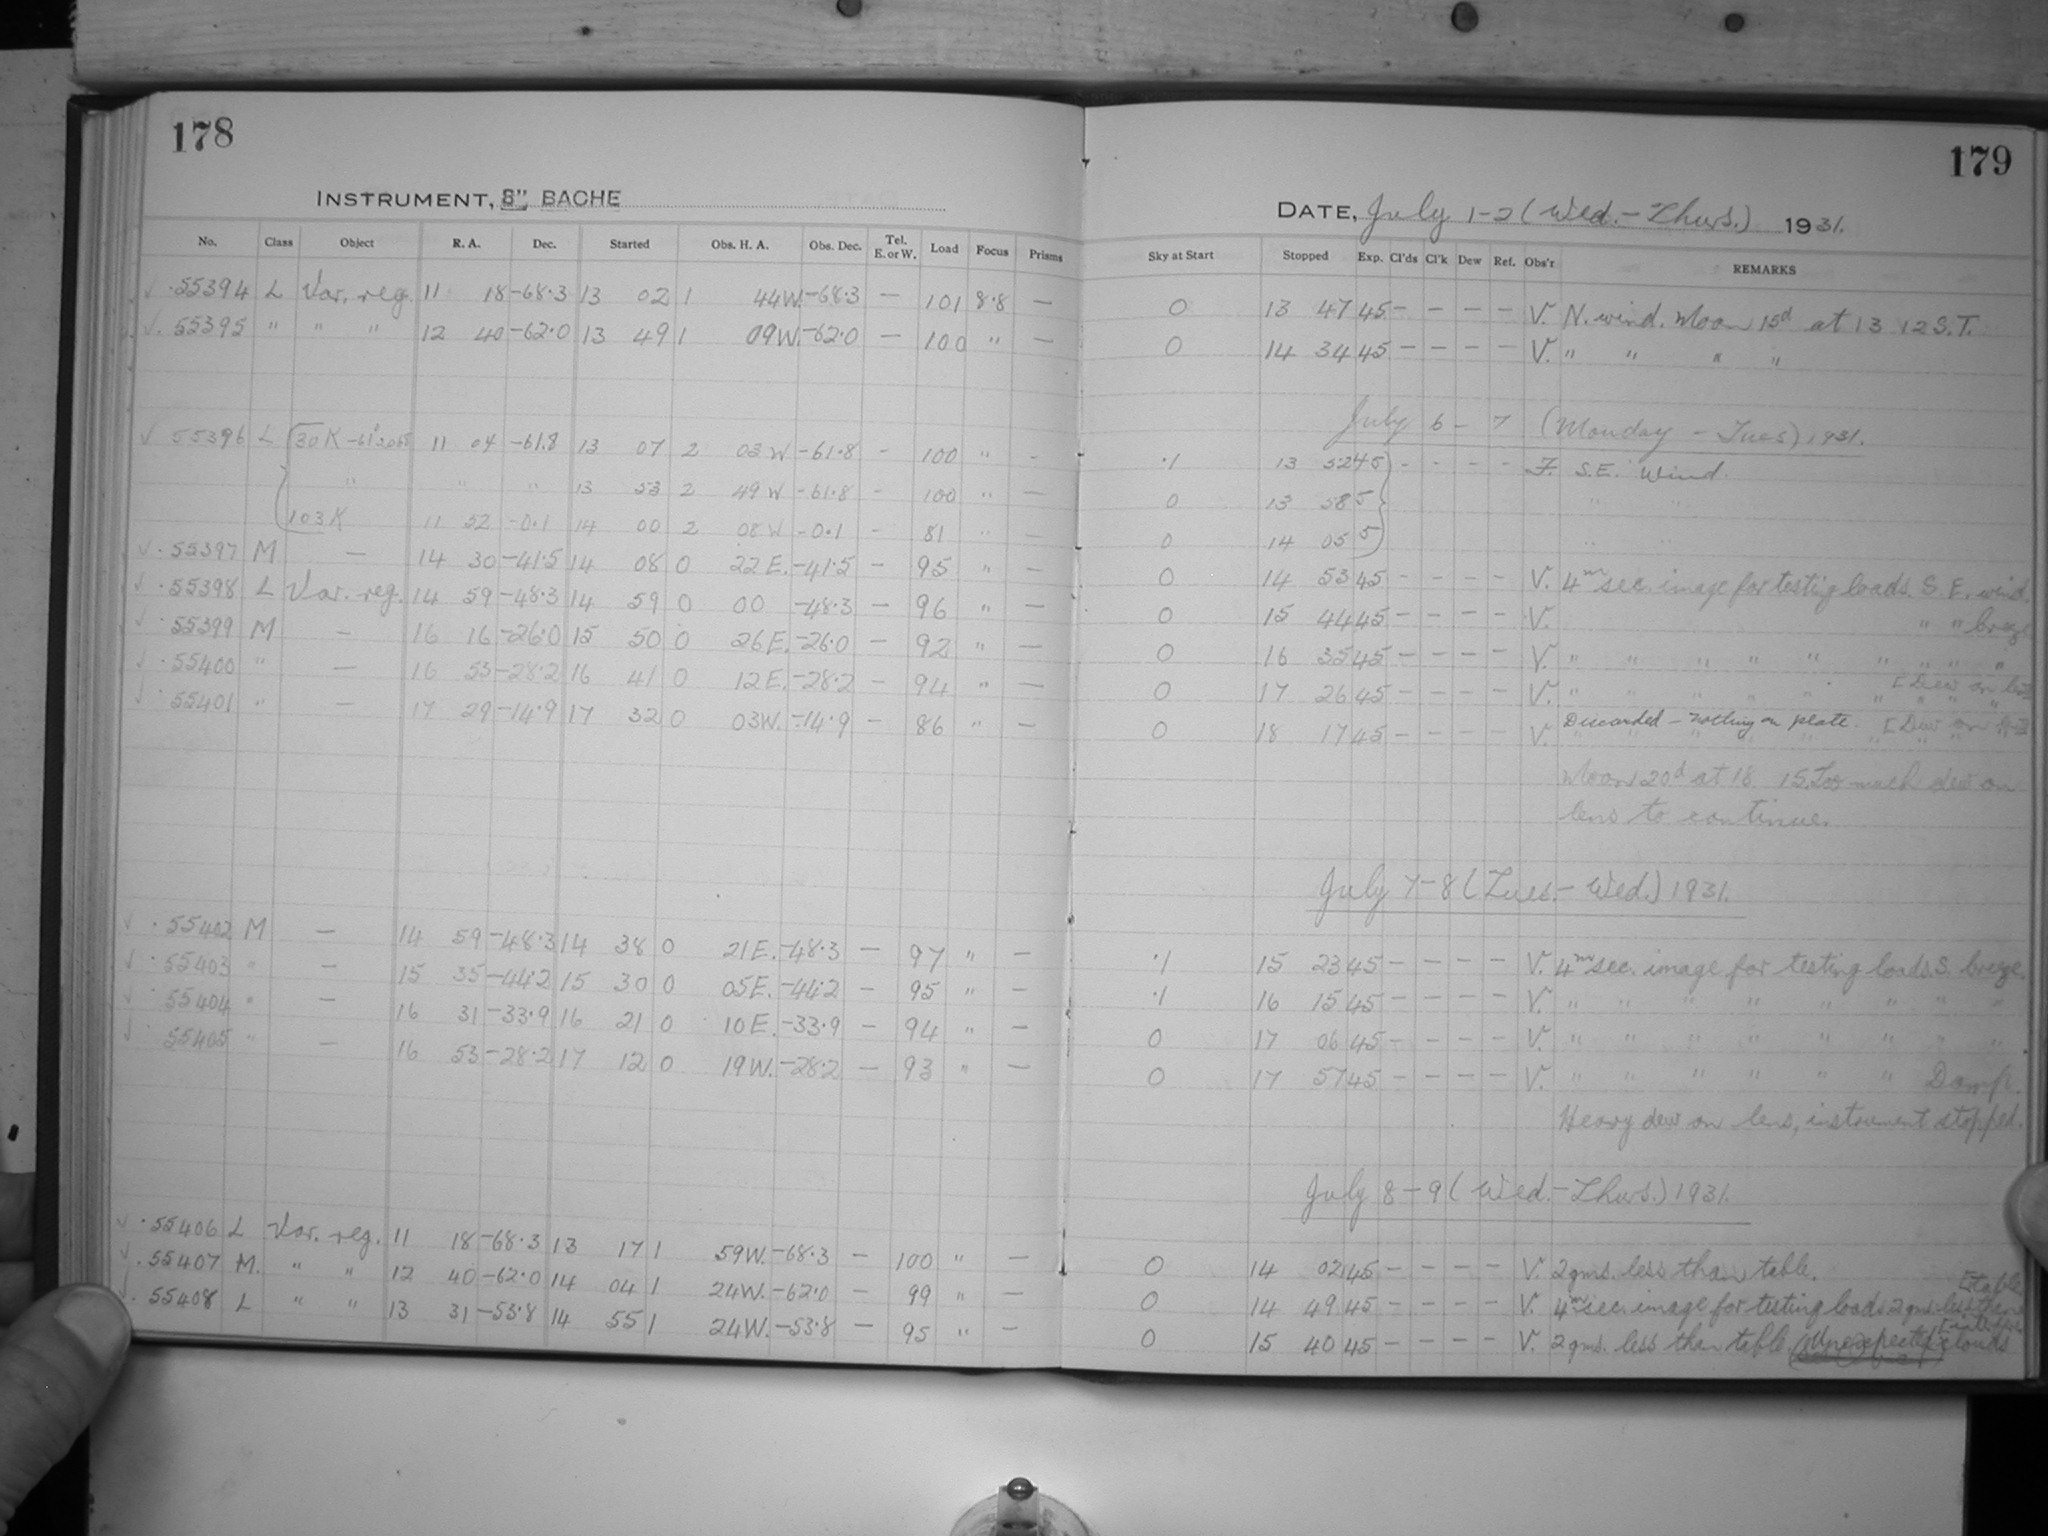 178
INSTRUMENT, 8" BACHE
No. Class Object R. A. Dec. Started Obs. H. A. Obs. Dec. Tel. E. or W. Load Focus Prisms
√ · 55394 L Var. reg. 11 18 -68.3 13 02 1 44 W. -68.3 — 101 8.8 —
√ . 55395 " " " 12 40 -62.0 13 49 1 09 W. -62.0 — 100 " —
√ 55396 L 30 K 11 04 -61.8 13 07 2 03 W -61.8 - 100 " -
" " " 13 53 2 49 W -61.8 - 100 " —
103 K 11 52 -0.1 14 00 2 08 W -0.1 - 81 " —
√ · 55397 M — 14 30 -41.5 14 08 0 22 E. -41.5 — 95 " —
√ · 55398 L Var. reg. 14 59 -48.3 14 59 0 00 -48.3 — 96 " —
√ · 55399 M — 16 16 -26.0 15 50 0 26 E. -26.0 — 92 " —
√ · 55400 " — 16 53 -28.2 16 41 0 12 E. -28.2 — 94 " —
√ · 55401 " — 17 29 -14.9 17 32 0 03 W. -14.9 — 86 " —
√ · 55402 M — 14 59 -48.3 14 38 0 21 E. -48.3 — 97 " —
√ · 55403 " — 15 35 -44.2 15 30 0 05 E. -44.2 — 95 " —
√ · 55404 " — 16 31 -33.9 16 21 0 10 E. -33.9 — 94 " —
√ · 55405 " — 16 53 -28.2 17 12 0 19 W. -28.2 — 93 " —
√ · 55406 L Var. reg. 11 18 -68.3 13 17 1 59 W. -68.3 — 100 " —
√ . 55407 M. " " 12 40 -62.0 14 04 1 24 W. -62.0 — 99 " —
√ . 55408 L " " 13 31 -53.8 14 55 1 24 W. -53.8 — 95 " —
179
DATE, July 1-2 (Wed. - Thurs.) 1931.
Sky at Start Stopped Exp. Cl'ds Cl'k Dew Ref. Obs'r REMARKS
0 13 47 45 — — — — V. N. wind. Moon 15d at 13 12 S.T.
0 14 34 45 — — — — V. " " " "
July 6 - 7 (Monday - Tues) 1931.
.1 13 52 45 - - - - F. S.E. Wind.
0 13 58 5 " "
0 14 05 5 " "
0 14 53 45 — — — — V. 4m sec. image for testing loads. S. E. wind.
0 15 44 45 — — — — V. " " breeze
0 16 35 45 — — — — V. " " " " " " " " "
[Dew on
0 17 26 45 — — — — V. " " " " " " " " "
Discarded - nothing on plate. [Dew on
0 18 17 45 — — — — V. " " " " " " " "
Moon 20d at 18 15. Too much dew on
lens to continue.
July 7-8 (Tues. - Wed.) 1931.
.1 15 23 45 — — — — V. 4m sec. image for testing loads. S. breeze.
.1 16 15 45 — — — — V. " " " " " " " "
0 17 06 45 — — — — V. " " " " " " " "
0 17 57 45 — — — — V. " " " " " " Damp.
Heavy dew on lens, instrument stopped.
July 8-9 (Wed. - Thurs.) 1931.
0 14 02 45 — — — — V. 2 gms. less than table.
[table
0 14 49 45 — — — — V. 4m sec. image for testing loads 2 gms. less than
0 15 40 45 — — — — V. 2 gms. less than table. (Unexpected clouds